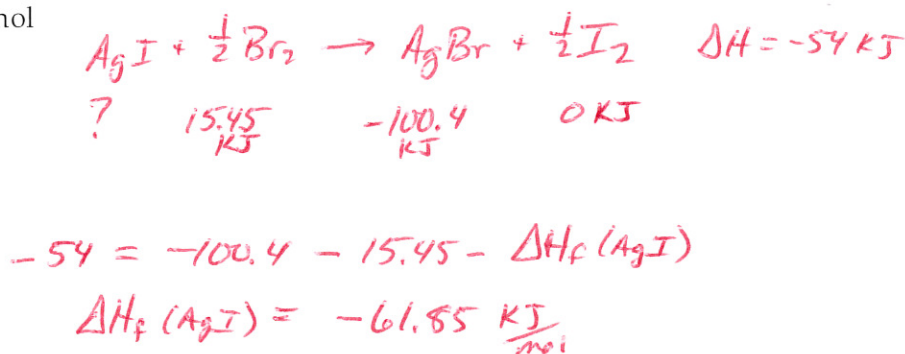 nol
AgI + 1/2 Br₂ → AgBr + 1/2 I₂ ΔH = -54 KJ
? 15.45 KJ -100.4 KJ 0 KJ
-54 = -100.4 - 15.45 - ΔHf (AgI)
ΔHf (AgI) = -61.85 KJ/mol